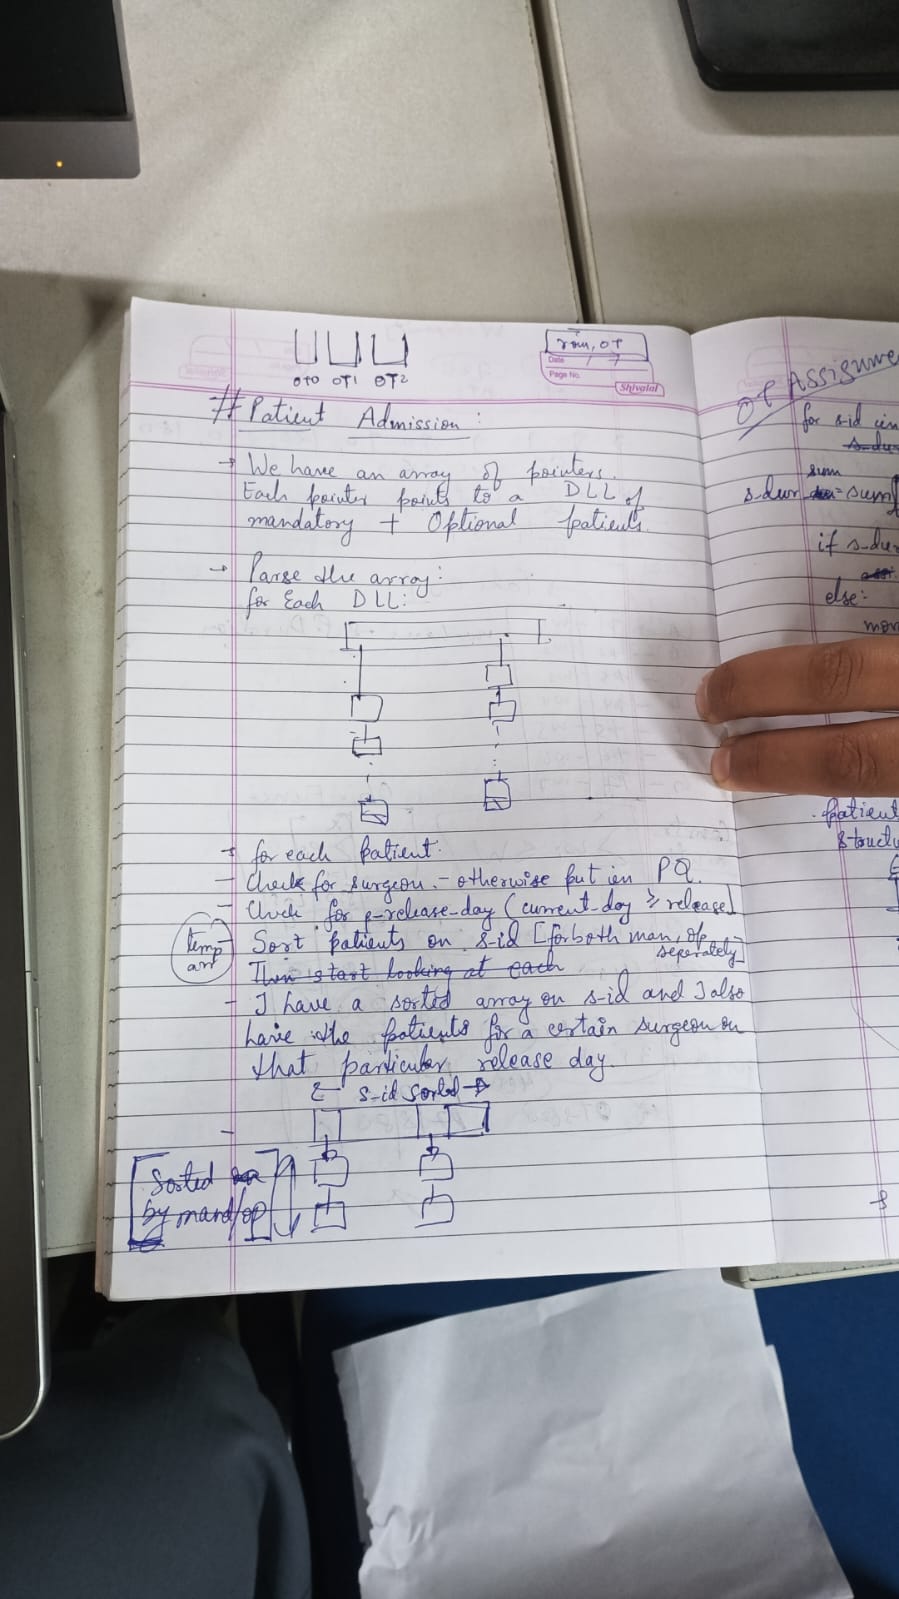 OT0 OT1 OT2
room, OT
Date / 7
Page No.
Shivalal
# Patient Admission :
→ We have an array of pointers.
Each pointer points to a DLL of
mandatory + Optional patients.
→ Parse the array:
for Each DLL:
→ for each Patient:
- Check for surgeon. - otherwise put in PQ.
- Check for p-release-day (current-day ≥ release]
temp arr
- Sort patients on s-id [for both man, op seperately]
Then start looking at each
- I have a sorted array on s-id and I also
have the patients for a certain surgeon on
that particular release day.
← s-id sorted →
[Sorted
by mand/op]
OT Assignme
for s-id in
s-du
sum
s-dur = sum
if s-du
else:
mov
Patient
structu